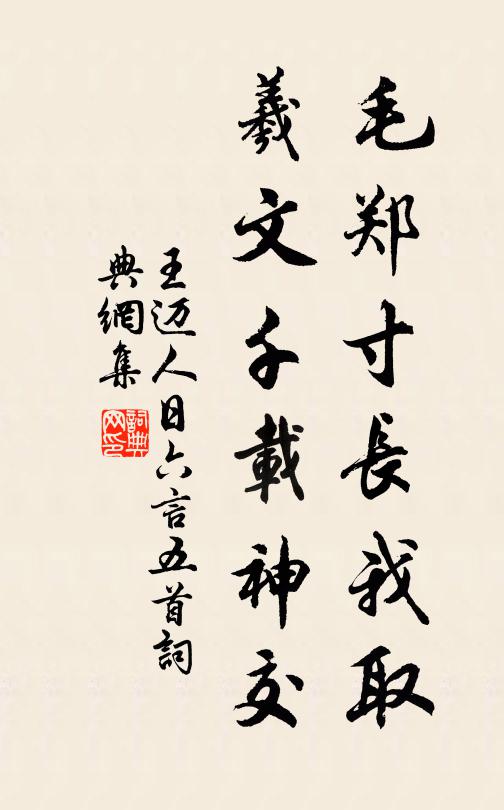 毛郑寸長我取
羲文千載神交
王迈人日六言五首詞
典網集
詞典网印